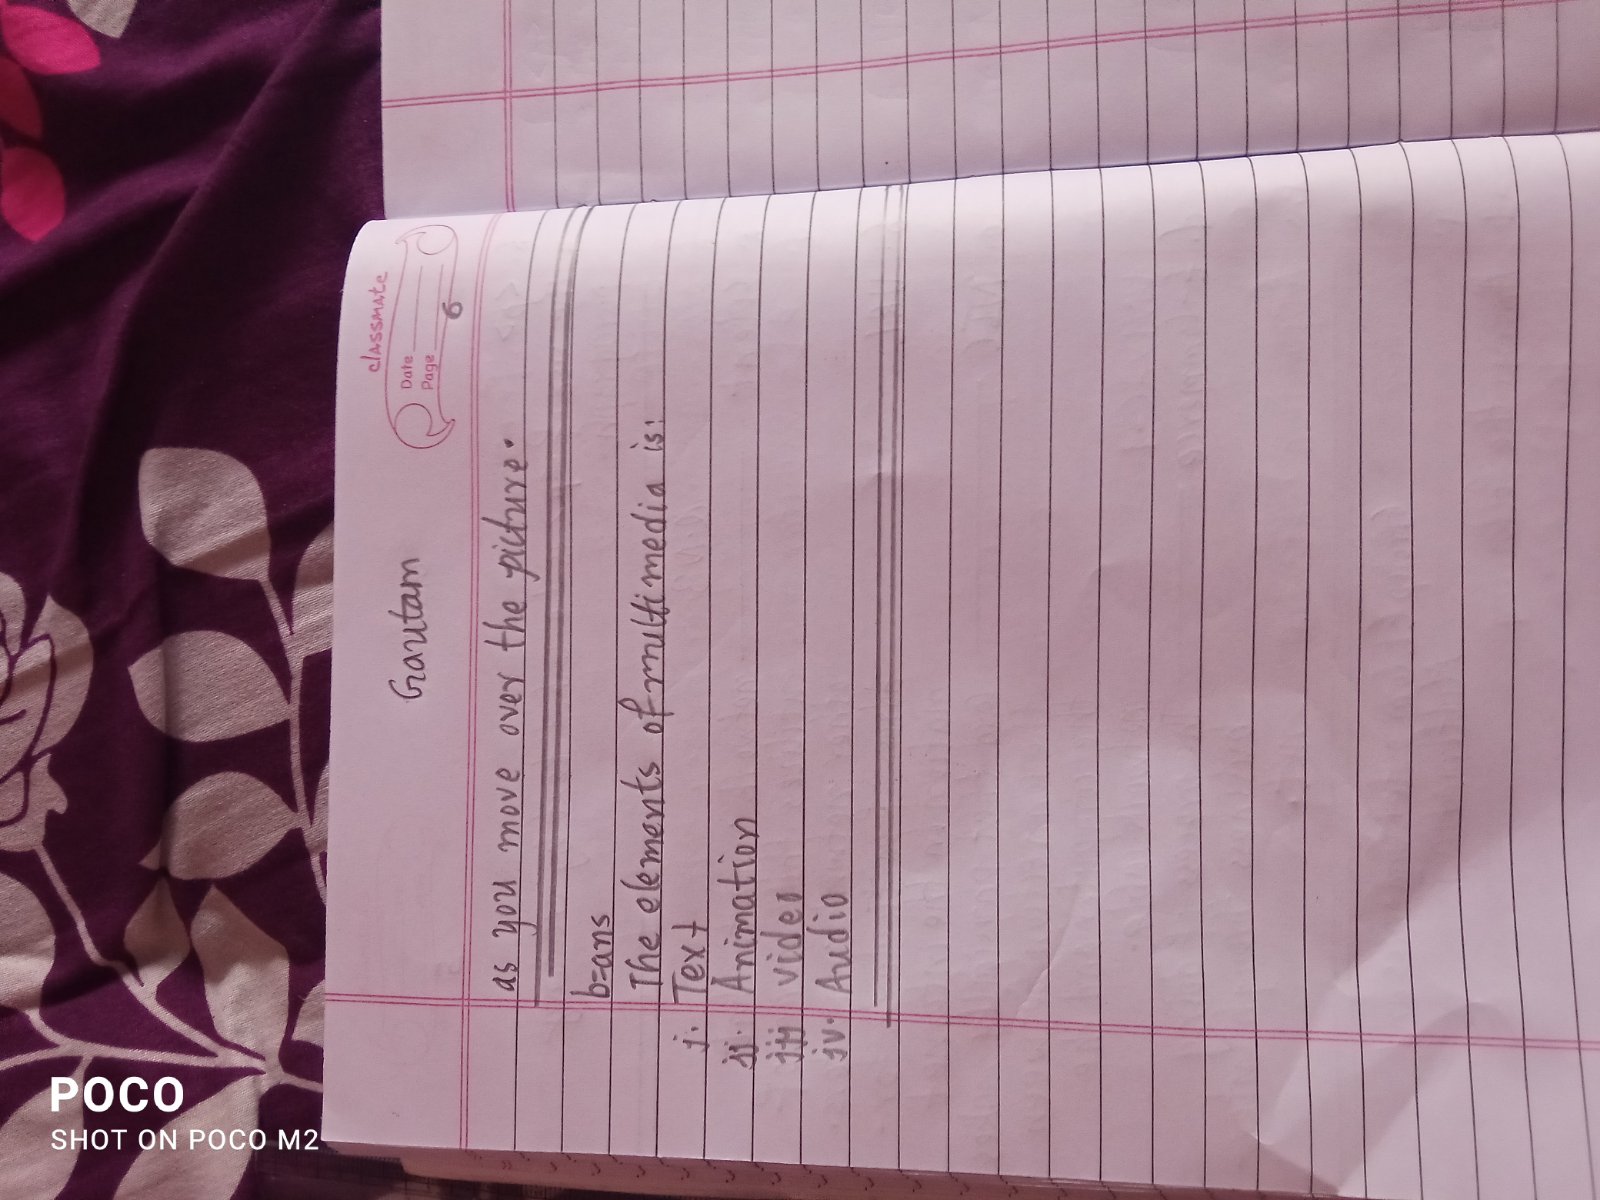 classmate
Date
Page 6
Gautam
as you move over the picture.
b=ans
The elements of multimedia is:
i. Text
ii. Animation
iii video
iv. Audio
POCO
SHOT ON POCO M2